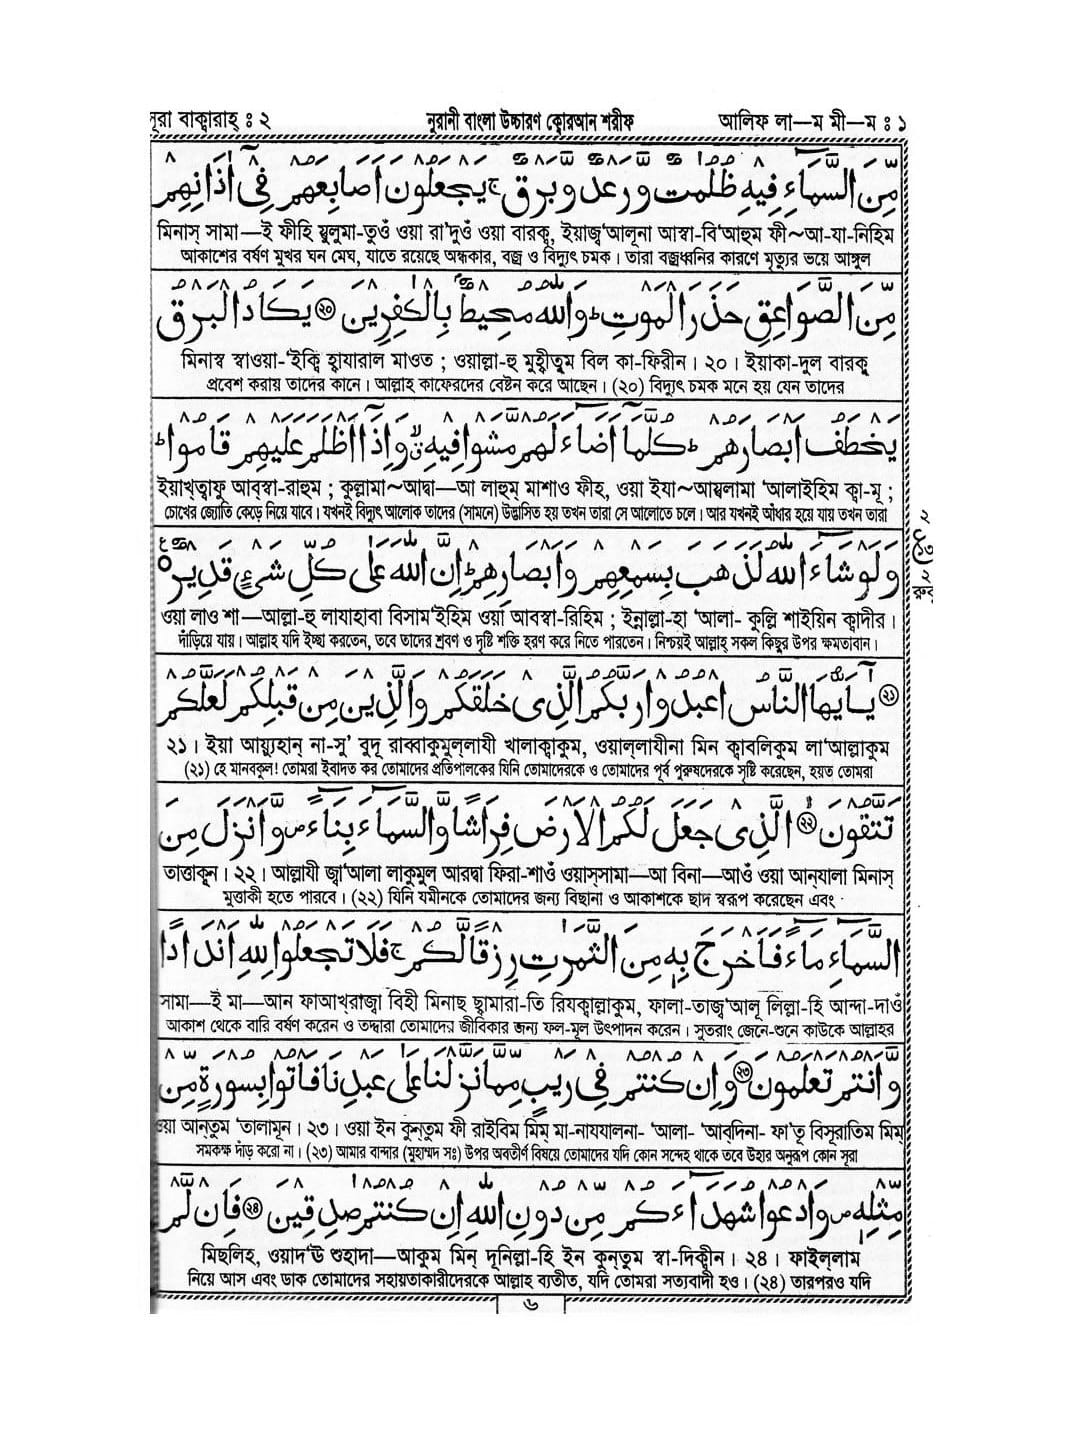 সূরা বাক্বারাহ্ ঃ ২ নূরানী বাংলা উচ্চারণ ক্বোরআন শরীফ আলিফ লা—ম মী—ম ঃ ১
مِّنَ السَّمَآءِ فِيْهِ ظُلُمٰتٌ وَّرَعْدٌ وَّبَرْقٌ ۚ يَجْعَلُوْنَ اَصَابِعَهُمْ فِيْٓ اٰذَانِهِمْ
মিনাস্ সামা—ই ফীহি য়ুলুমা-তুওঁ ওয়া রা'দুওঁ ওয়া বারক্ব, ইয়াজ্ব'আলূনা আস্বা-বি'আহুম ফী~আ-যা-নিহিম
আকাশের বর্ষণ মুখর ঘন মেঘ, যাতে রয়েছে অন্ধকার, বজ্র ও বিদ্যুৎ চমক। তারা বজ্রধ্বনির কারণে মৃত্যুর ভয়ে আঙ্গুল
مِّنَ الصَّوَاعِقِ حَذَرَ الْمَوْتِ ؕ وَاللّٰهُ مُحِيْطٌۢ بِالْكٰفِرِيْنَ ﴿٢٠﴾ يَكَادُ الْبَرْقُ
মিনাস্ব স্বাওয়া-'ইক্বি হ্বাযারাল মাওত ; ওয়াল্লা-হু মুহ্বীতুম বিল কা-ফিরীন। ২০। ইয়াকা-দুল বারকু
প্রবেশ করায় তাদের কানে। আল্লাহ কাফেরদের বেষ্টন করে আছেন। (২০) বিদ্যুৎ চমক মনে হয় যেন তাদের
يَخْطَفُ اَبْصَارَهُمْ ؕ كُلَّمَآ اَضَآءَ لَهُمْ مَّشَوْا فِيْهِ ۙ وَاِذَآ اَظْلَمَ عَلَيْهِمْ قَامُوْا ؕ
ইয়াখ্ত্বাফু আব্স্বা-রাহুম ; কুল্লামা~আদ্বা—আ লাহুম্ মাশাও ফীহ, ওয়া ইযা~আয্বলামা 'আলাইহিম ক্বা-মূ ;
চোখের জ্যোতি কেড়ে নিয়ে যাবে। যখনই বিদ্যুৎ আলোক তাদের (সামনে) উদ্ভাসিত হয় তখন তারা সে আলোতে চলে। আর যখনই আঁধার হয়ে যায় তখন তারা
وَلَوْ شَآءَ اللّٰهُ لَذَهَبَ بِسَمْعِهِمْ وَاَبْصَارِهِمْ ؕ اِنَّ اللّٰهَ عَلٰى كُلِّ شَيْءٍ قَدِيْرٌ
ওয়া লাও শা—আল্লা-হু লাযাহাবা বিসাম'ইহিম ওয়া আবস্বা-রিহিম ; ইন্নাল্লা-হা 'আলা- কুল্লি শাইয়িন ক্বাদীর।
দাঁড়িয়ে যায়। আল্লাহ যদি ইচ্ছা করতেন, তবে তাদের শ্রবণ ও দৃষ্টি শক্তি হরণ করে নিতে পারতেন। নিশ্চয়ই আল্লাহ্ সকল কিছুর উপর ক্ষমতাবান।
﴿٢١﴾ يٰٓاَيُّهَا النَّاسُ اعْبُدُوْا رَبَّكُمُ الَّذِيْ خَلَقَكُمْ وَالَّذِيْنَ مِنْ قَبْلِكُمْ لَعَلَّكُمْ
২১। ইয়া আয়্যুহান্ না-সু' বুদূ রাব্বাকুমুল্লাযী খালাক্বাকুম, ওয়াল্লাযীনা মিন ক্বাবলিকুম লা'আল্লাকুম
(২১) হে মানবকুল! তোমরা ইবাদত কর তোমাদের প্রতিপালকের যিনি তোমাদেরকে ও তোমাদের পূর্ব পুরুষদেরকে সৃষ্টি করেছেন, হয়ত তোমরা
تَتَّقُوْنَ ﴿٢٢﴾ الَّذِيْ جَعَلَ لَكُمُ الْاَرْضَ فِرَاشًا وَّالسَّمَآءَ بِنَآءً ۪ وَّاَنْزَلَ مِنَ
তাত্তাকূন। ২২। আল্লাযী জ্বা'আলা লাকুমুল আরদ্বা ফিরা-শাওঁ ওয়াস্সামা—আ বিনা—আওঁ ওয়া আন্যালা মিনাস্
মুত্তাকী হতে পারবে। (২২) যিনি যমীনকে তোমাদের জন্য বিছানা ও আকাশকে ছাদ স্বরূপ করেছেন এবং
السَّمَآءِ مَآءً فَاَخْرَجَ بِهٖ مِنَ الثَّمَرٰتِ رِزْقًا لَّكُمْ ۚ فَلَا تَجْعَلُوْا لِلّٰهِ اَنْدَادًا
সামা—ই মা—আন ফাআখ্রাজ্বা বিহী মিনাছ ছামারা-তি রিযক্বাল্লাকুম, ফালা-তাজ্ব'আলূ লিল্লা-হি আন্দা-দাওঁ
আকাশ থেকে বারি বর্ষণ করেন ও তদ্দ্বারা তোমাদের জীবিকার জন্য ফল-মূল উৎপাদন করেন। সুতরাং জেনে-শুনে কাউকে আল্লাহর
وَّاَنْتُمْ تَعْلَمُوْنَ ﴿٢٣﴾ وَاِنْ كُنْتُمْ فِيْ رَيْبٍ مِّمَّا نَزَّلْنَا عَلٰى عَبْدِنَا فَاْتُوْا بِسُوْرَةٍ مِّنْ
ওয়া আন্তুম 'তালামূন। ২৩। ওয়া ইন কুন্তুম ফী রাইবিম মিম্ মা-নাযযালনা- 'আলা- 'আব্দিনা- ফা'তূ বিসূরাতিম মিম্
সমকক্ষ দাঁড় করো না। (২৩) আমার বান্দার (মুহাম্মদ সঃ) উপর অবতীর্ণ বিষয়ে তোমাদের যদি কোন সন্দেহ থাকে তবে উহার অনুরূপ কোন সূরা
مِّثْلِهٖ ۪ وَادْعُوْا شُهَدَآءَكُمْ مِّنْ دُوْنِ اللّٰهِ اِنْ كُنْتُمْ صٰدِقِيْنَ ﴿٢٤﴾ فَاِنْ لَّمْ
মিছলিহ, ওয়াদ'ঊ শুহাদা—আকুম মিন্ দূনিল্লা-হি ইন কুন্তুম স্বা-দিক্বীন। ২৪। ফাইল্লাম
নিয়ে আস এবং ডাক তোমাদের সহায়তাকারীদেরকে আল্লাহ ব্যতীত, যদি তোমরা সত্যবাদী হও। (২৪) তারপরও যদি
৬